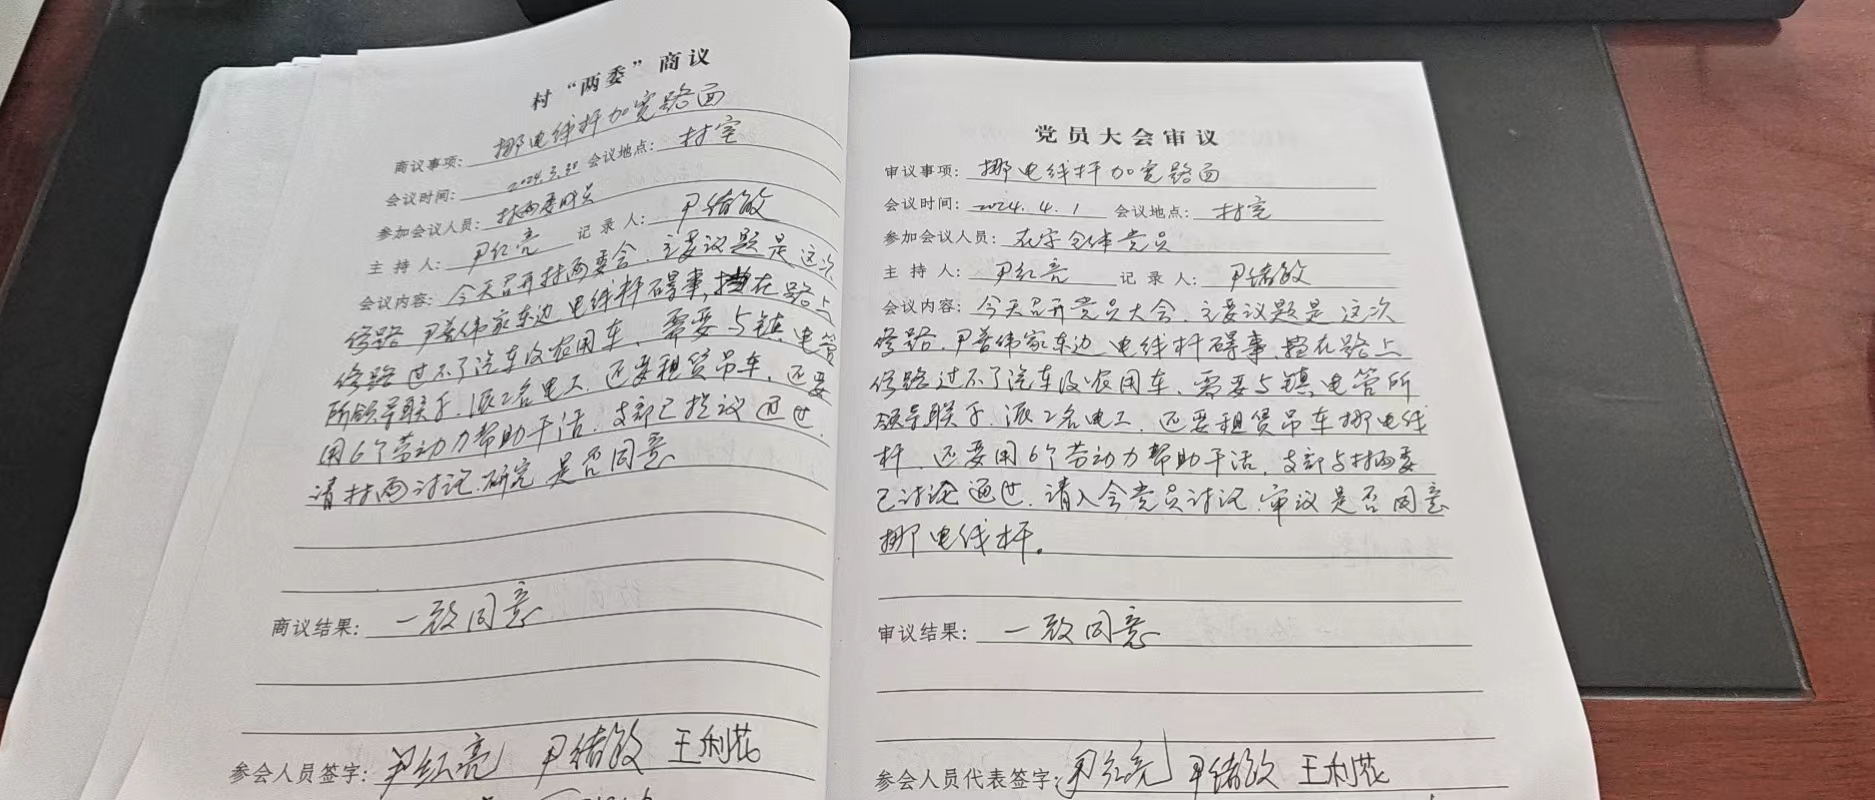 村“两委”商议
商议事项：挪电线杆加宽路面
会议时间：2024.3.30 会议地点：村室
参加会议人员：村两委成员
主持人：尹红亮 记录人：尹绪敏
会议内容：今天召开村两委会、主要议题是这次
修路尹善伟家东边电线杆碍事，挡在路上
修路过不了汽车及农用车、需要与镇电管
所领导联系、派2名电工、还要租赁吊车、还要
用6个劳动力帮助干活、支部已提议通过、
请村两讨论.研究是否同意
商议结果：一致同意
参会人员签字：尹红亮 尹绪敏 王利花
党员大会审议
审议事项：挪电线杆加宽路面
会议时间：2024.4.1 会议地点：村室
参加会议人员：在家全体党员
主持人：尹红亮 记录人：尹绪敏
会议内容：今天召开党员大会、主要议题是这次
修路、尹善伟家东边电线杆碍事、挡在路上
修路过不了汽车及农用车、需要与镇电管所
领导联系、派2名电工、还要租赁吊车挪电线
杆、还要用6个劳动力帮助干活、支部与村两委
已讨论通过、请入会党员讨论.审议是否同意
挪电线杆。
审议结果：一致同意
参会人员代表签字：尹红亮 尹绪敏 王利花